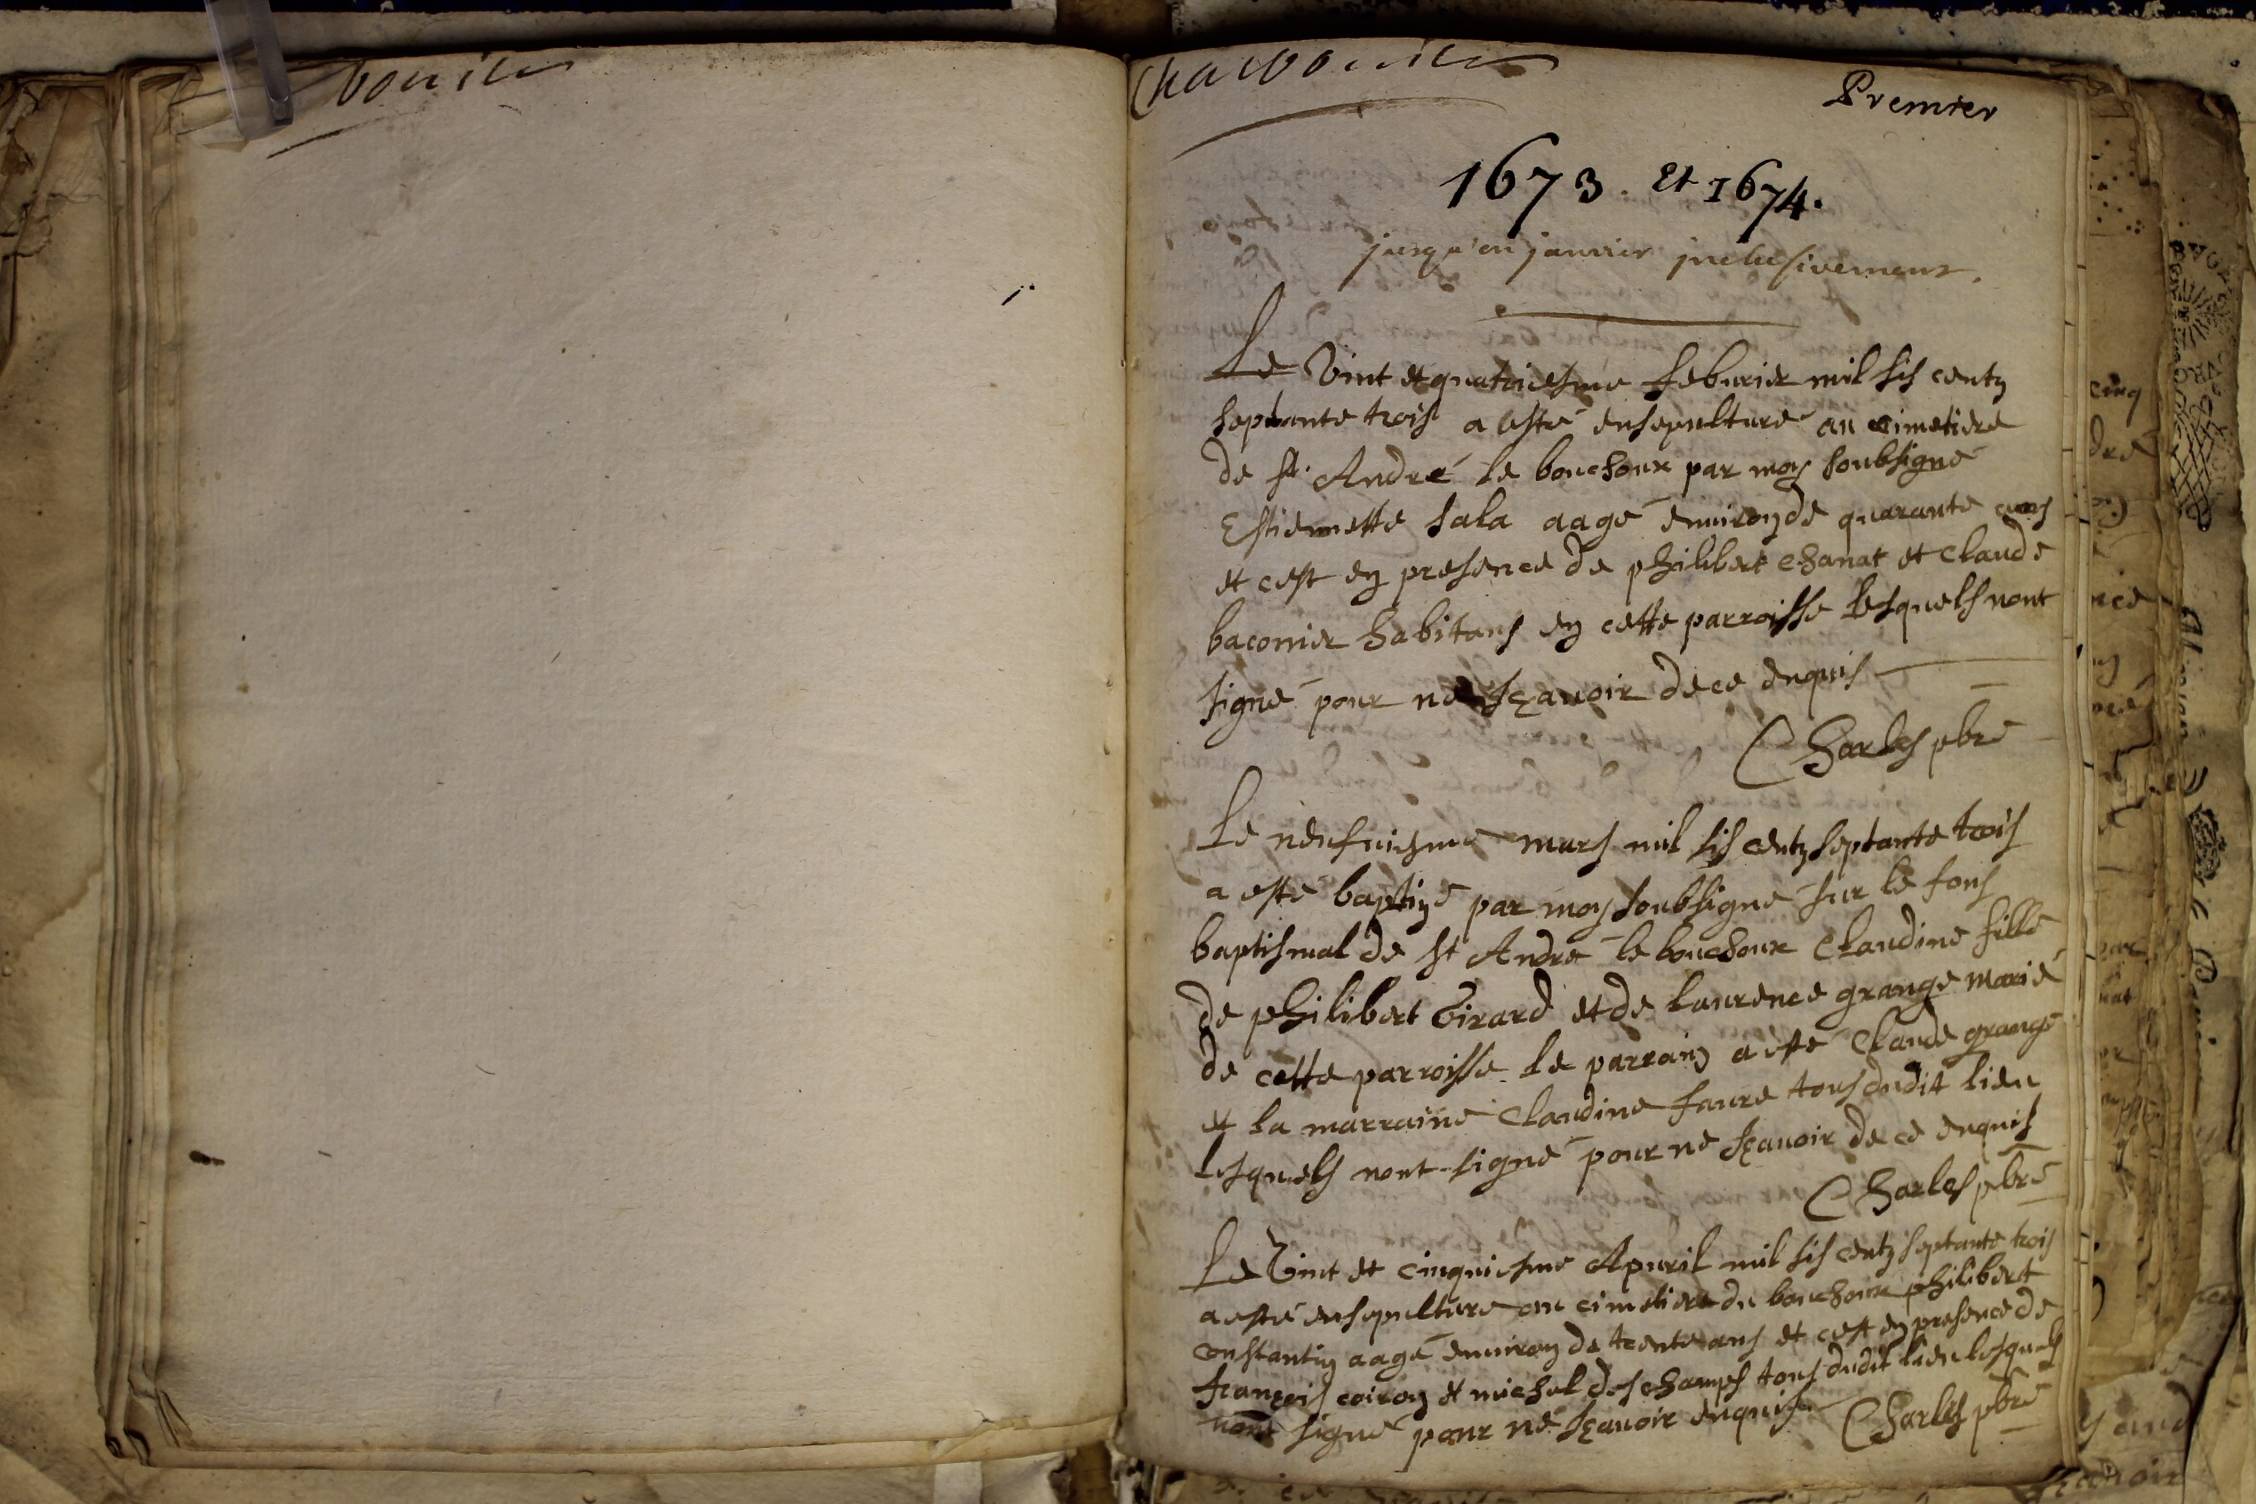 Charbonier
Premier
1673. et 1674.
jusqu'en janvier inclusivement.
Le Vint et quatriesme feburier mil sis centz
septante trois a esté ensepulturé au cimetiere
de st. André le bouchoux par moy soubsigné
Estiennette sala aagé enuiron de quarante ans
et cest en presence de philibert Chanat et Claude
baconier habitans en cette parroisse lesquels nont
signé pour ne sçauoir de ce enquis
Charles pbre
Le neufuiesme mars mil sis centz septante trois
a esté baptizé par moy soubsigné sur le fons
baptismal de st André le bouchoux Claudine fille
de philibert Girard et de laurence grange marié
de cette parroisse le parrain a esté Claude grange
et la marraine Claudine faure tous dudit lieu
lesquels nont signé pour ne sçauoir de ce enquis
Charles pbre
Le Vint et cinquiesme Apuril mil sis centz septante trois
a esté ensepulturé au cimetiere du bouchoux philibert
Constantin aagé enuiron de trente ans et cest en presence de
françois coiron et michel deschamps tous dudit lieu lesquels
nont signé pour ne sçauoir enquis Charles pbre